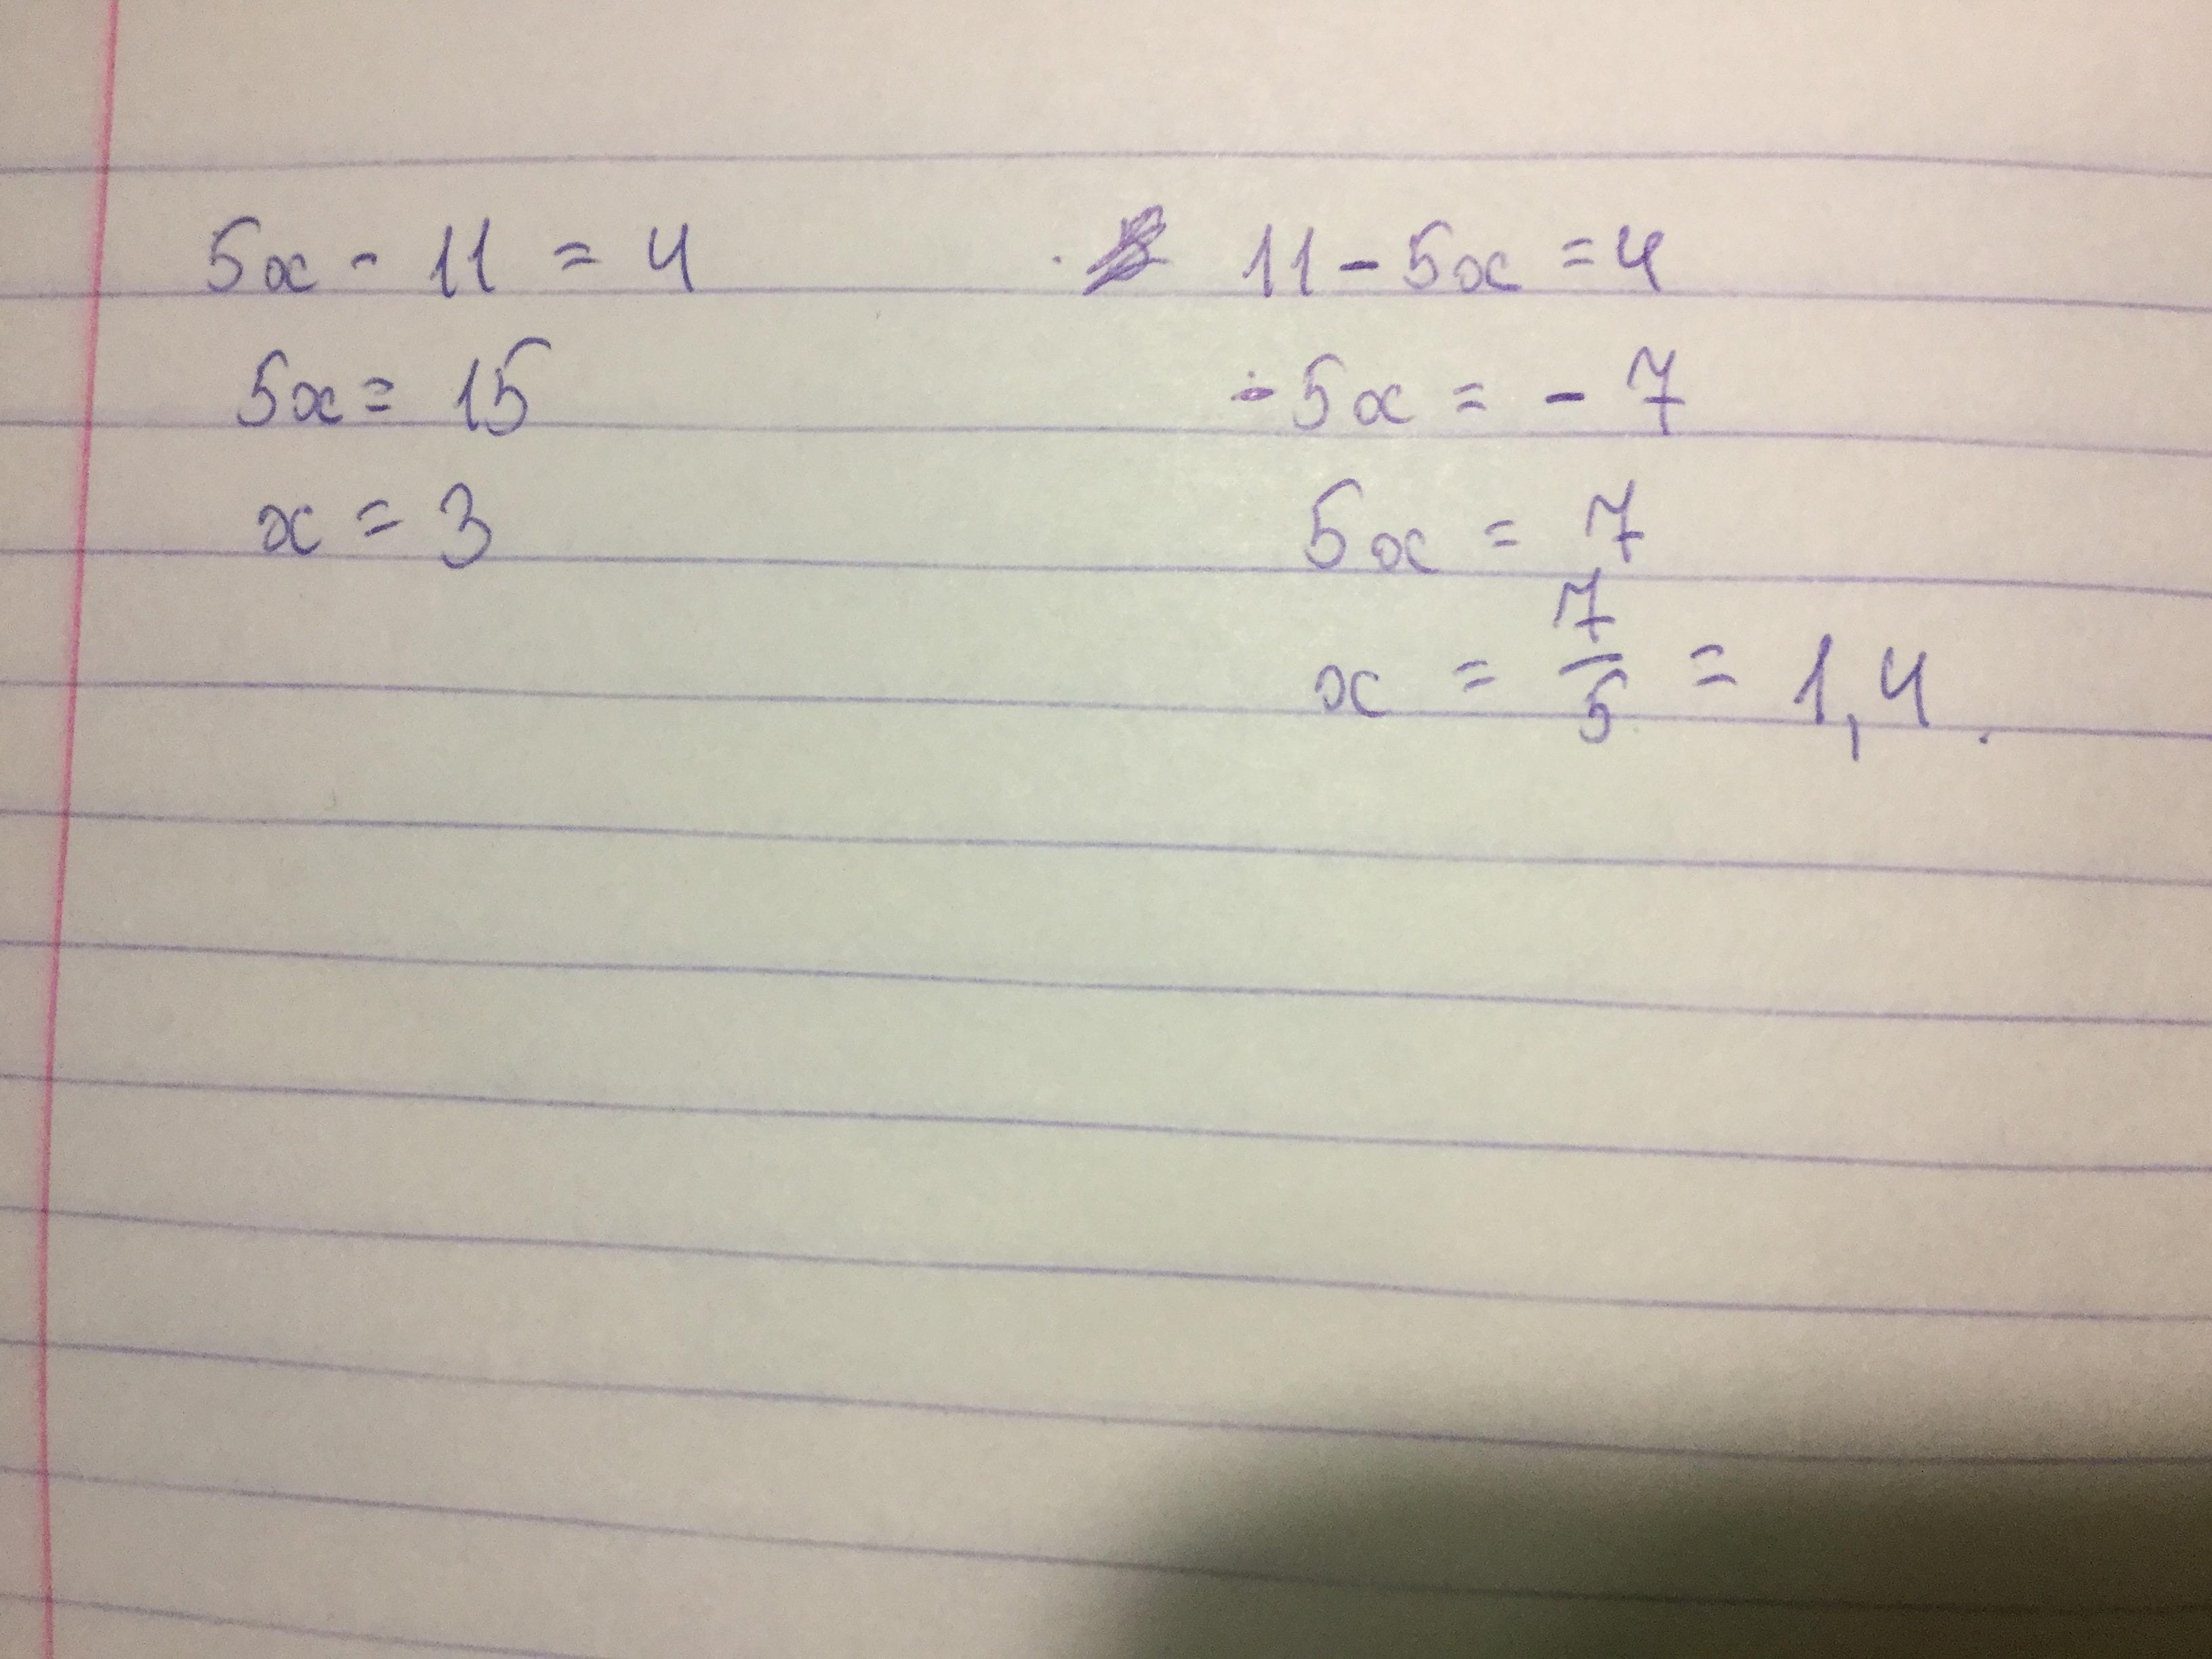 5x - 11 = 4
5x = 15
x = 3
11 - 5x = 4
-5x = -7
5x = 7
x = 7/5 = 1,4.